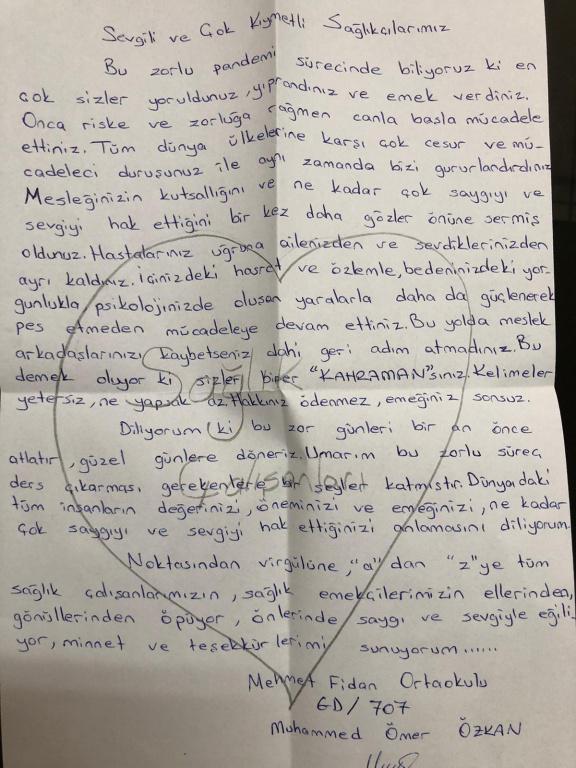 Sevgili ve Çok Kıymetli Sağlıkcılarımız
Bu zorlu pandemi sürecinde biliyoruz ki en
çok sizler yoruldunuz, yıprandınız ve emek verdiniz.
Onca riske ve zorluğa rağmen canla başla mücadele
ettiniz. Tüm dünya ülkelerine karşı çok cesur ve mü-
cadeleci duruşunuz ile aynı zamanda bizi gururlandırdınız
Mesleğinizin kutsallığını ve ne kadar çok saygıyı ve
sevgiyi hak ettiğini bir kez daha gözler önüne sermiş
oldunuz. Hastalarınız uğruna ailenizden ve sevdiklerinizden
ayrı kaldınız. İçinizdeki hasret ve özlemle, bedeninizdeki yor-
gunlukla, psikolojinizde oluşan yaralarla daha da güçlenerek
pes etmeden mücadeleye devam ettiniz. Bu yolda meslek
arkadaşlarınızı kaybetseniz dahi geri adım atmadınız. Bu
demek oluyor ki sizler birer "KAHRAMAN"sınız. Kelimeler
yetersiz, ne yapsak az. Hakkınız ödenmez, emeğiniz sonsuz.
Sağlık
Diliyorum ki bu zor günleri bir an önce
atlatır, güzel günlere döneriz. Umarım bu zorlu süreç,
Çalışanları
ders çıkarması gerekenlere bir şeyler katmıştır. Dünyadaki
tüm insanların değerinizi, öneminizi ve emeğinizi, ne kadar
çok saygıyı ve sevgiyi hak ettiğinizi anlamasını diliyorum
Noktasından virgülüne, "a" dan "z"ye tüm
sağlık çalışanlarımızın, sağlık emekçilerimizin ellerinden,
gönüllerinden öpüyor, önlerinde saygı ve sevgiyle eğili
yor, minnet ve teşekkürlerimi sunuyorum......
Mehmet Fidan Ortaokulu
GD/707
Muhammed Ömer ÖZKAN